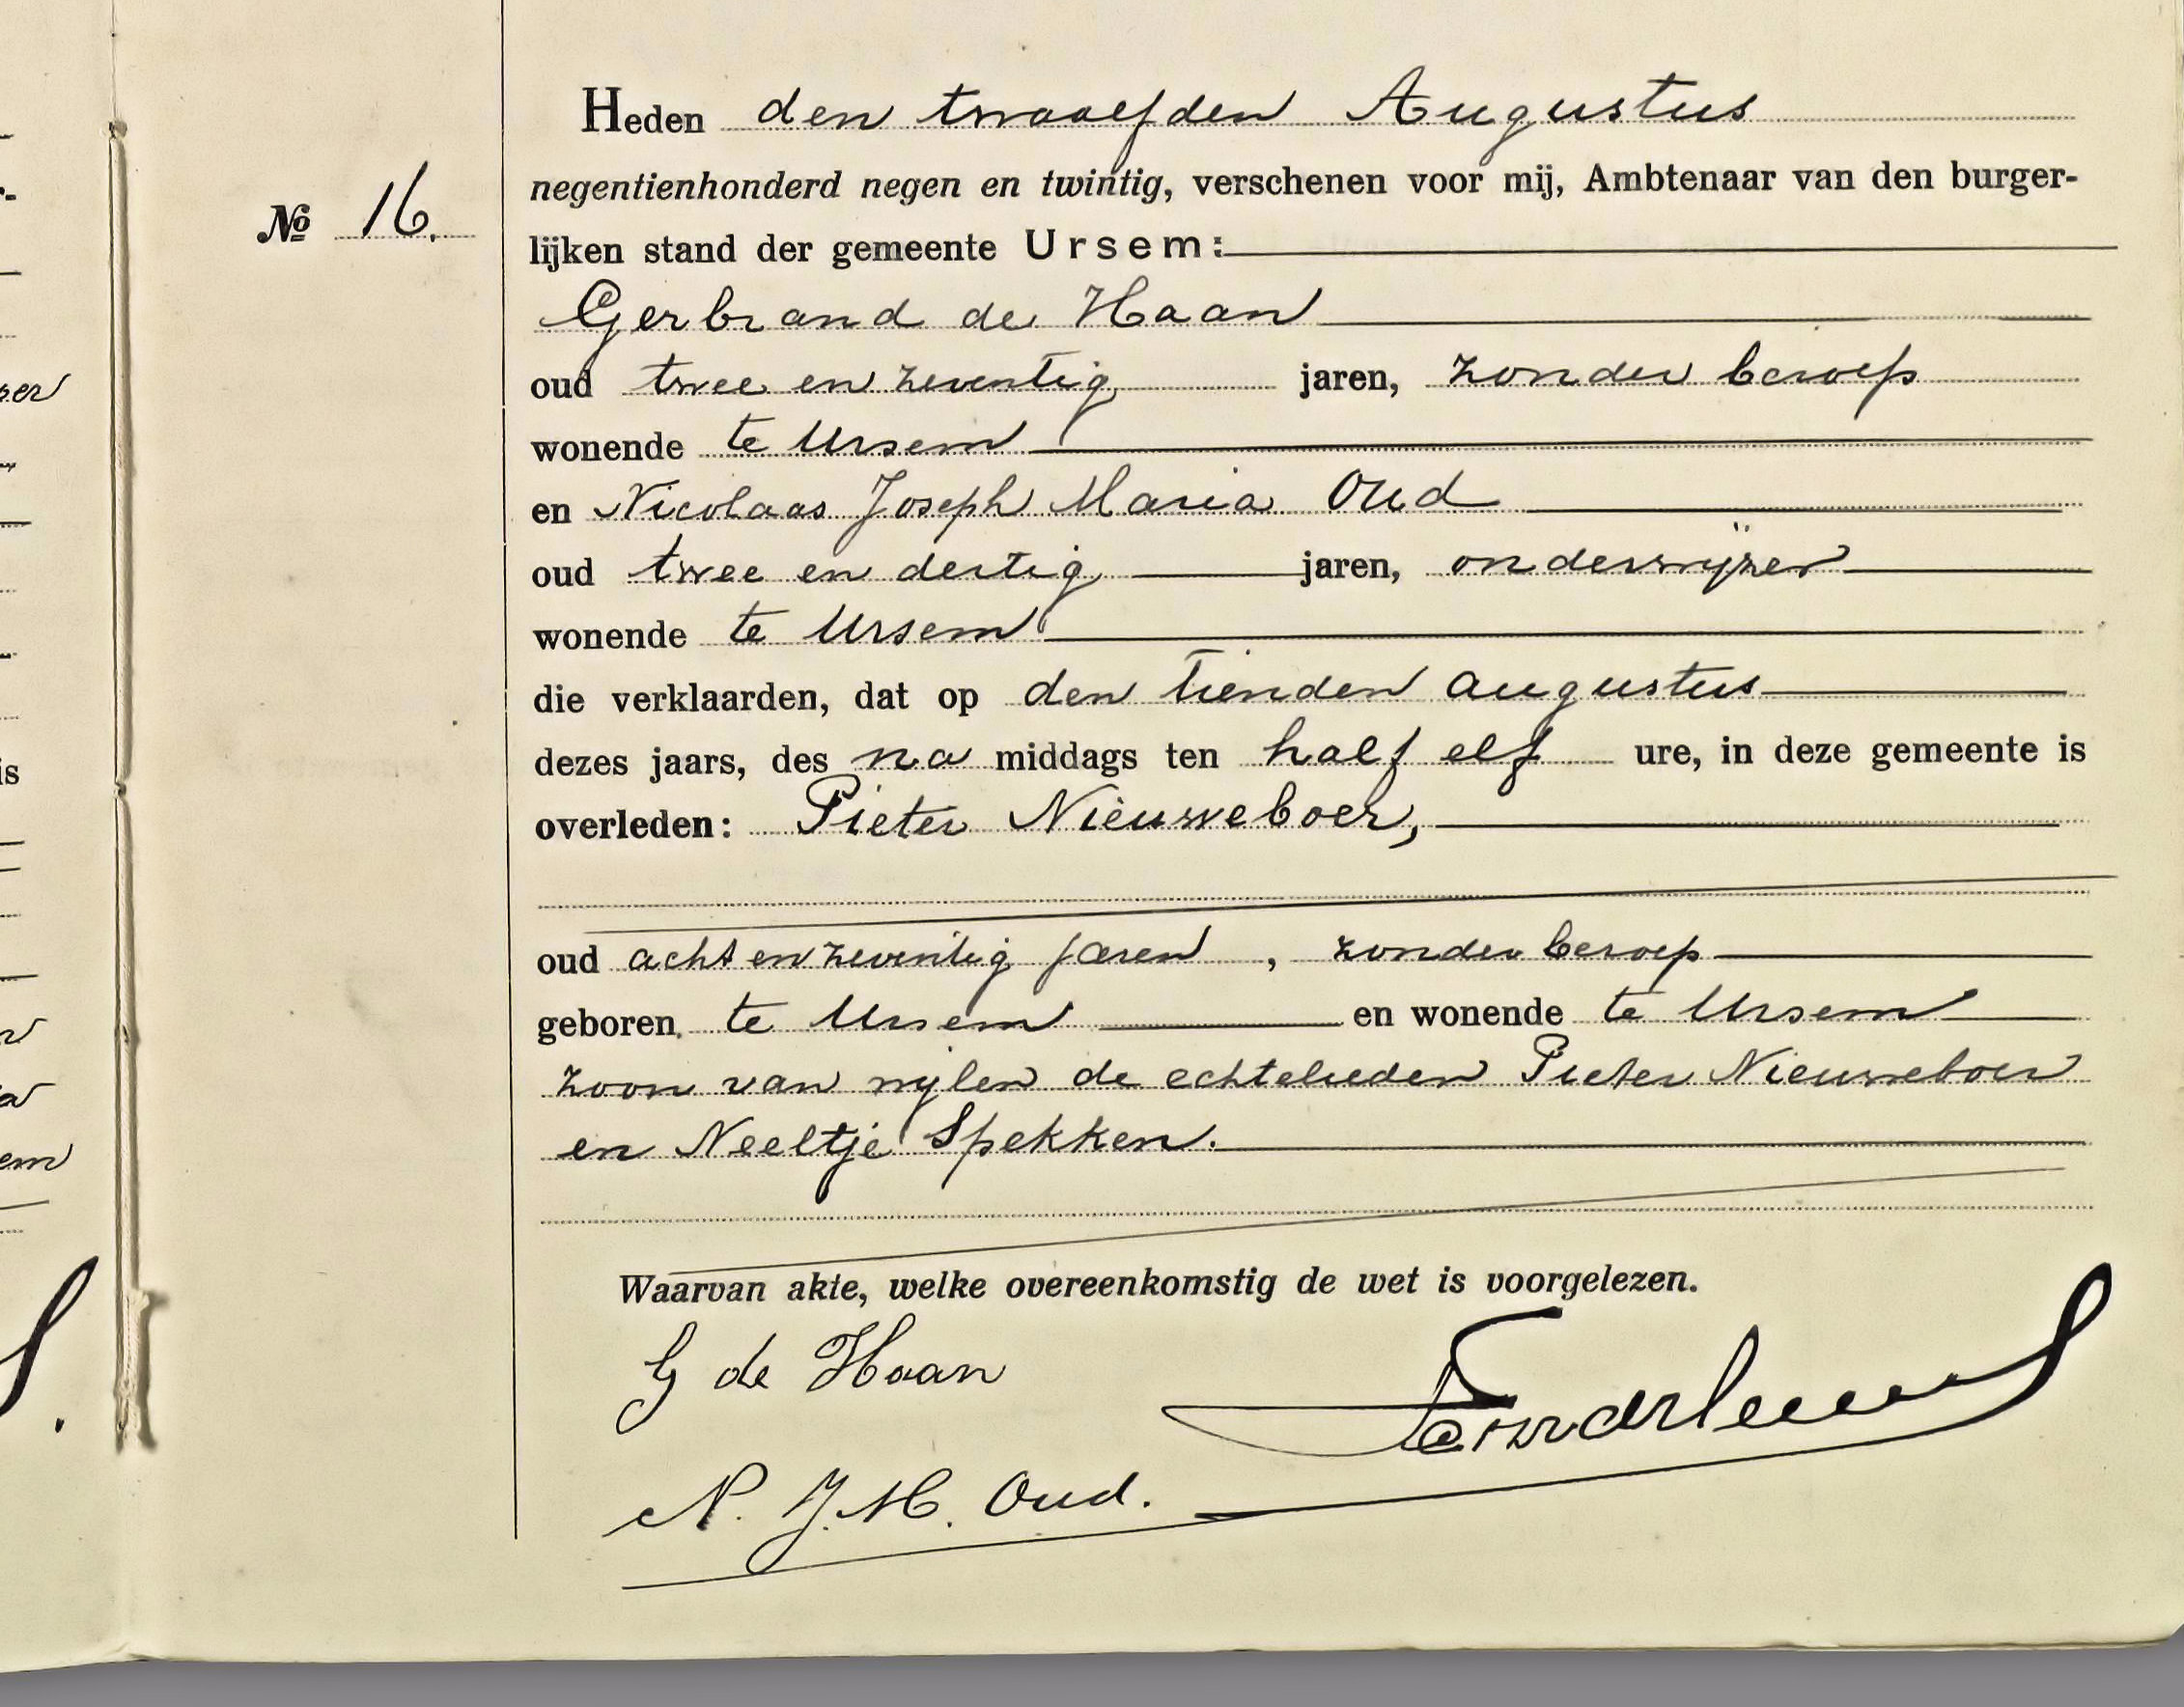 Heden den twaalfden Augustus
negentienhonderd negen en twintig, verschenen voor mij, Ambtenaar van den burger-
№ 16.
lijken stand der gemeente Ursem:
Gerbrand de Haan
oud twee en zeventig jaren, zonder beroep
wonende te Ursem
en Nicolaas Joseph Maria Oud
oud twee en dertig jaren, onderwijzer
wonende te Ursem
die verklaarden, dat op den tienden augustus
dezes jaars, des na middags ten half elf ure, in deze gemeente is
overleden: Pieter Nieuweboer,
oud acht en zeventig jaren, zonder beroep
geboren te Ursem en wonende te Ursem
zoon van wijlen de echtelieden Pieter Nieuweboer
en Neeltje Spekken.
Waarvan akte, welke overeenkomstig de wet is voorgelezen.
G de Haan
N. J. M. Oud.